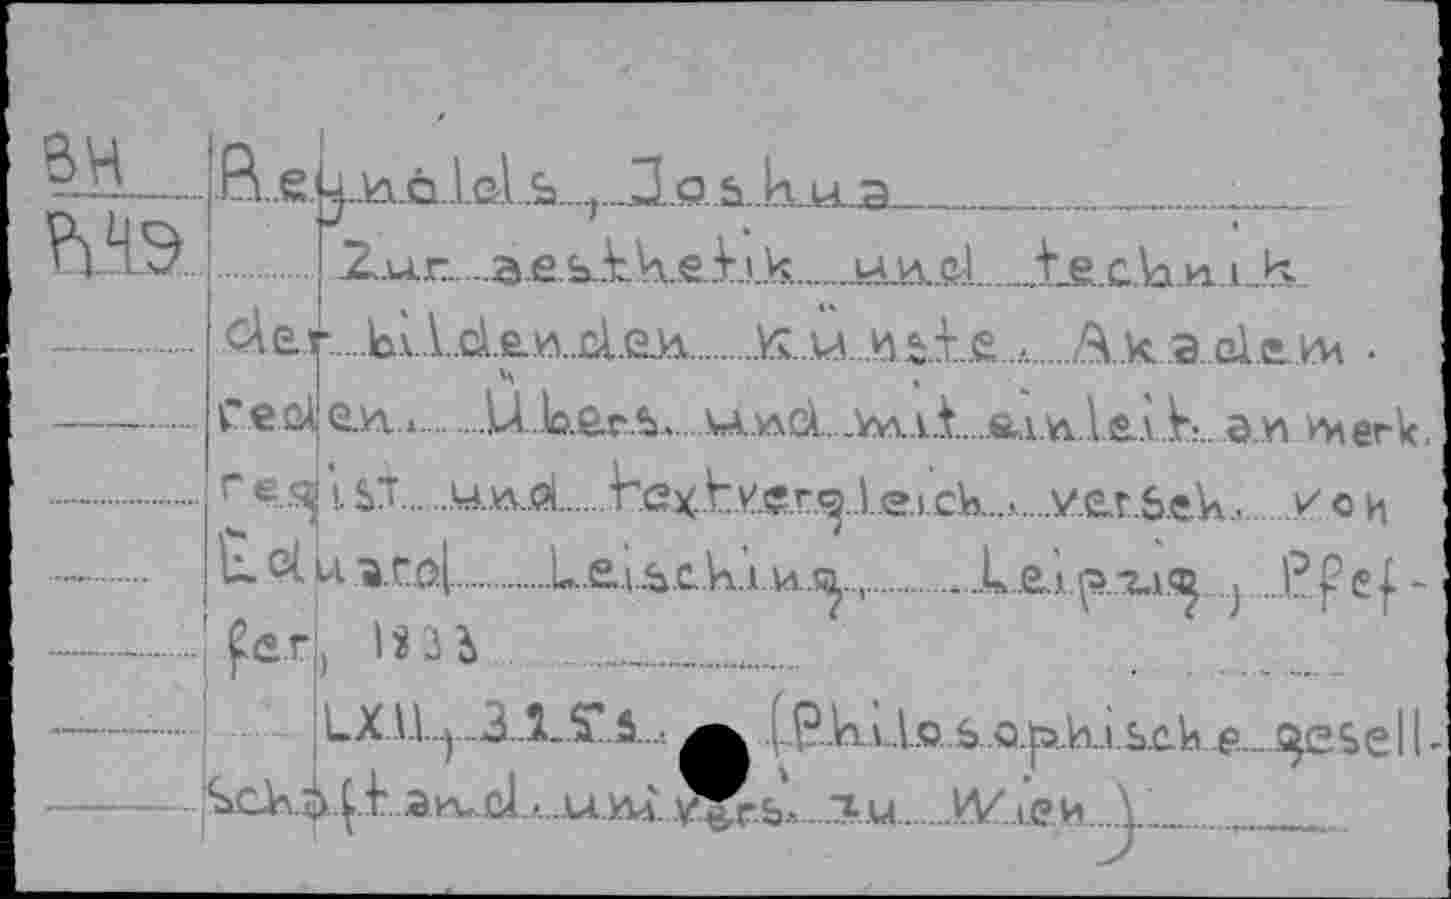 BH Reynolds, Joshua
R49 Zur aesthetik und technik
der bildenden künste. Akadem.
reden. Übers. und mit einleit. anmerk.
regist. und textvergleich. verseh. von
Eduard Leisching. Leipzig, Pfef-
fer,
(Philosophische gesell-
schaft and. univers. zu Wien)